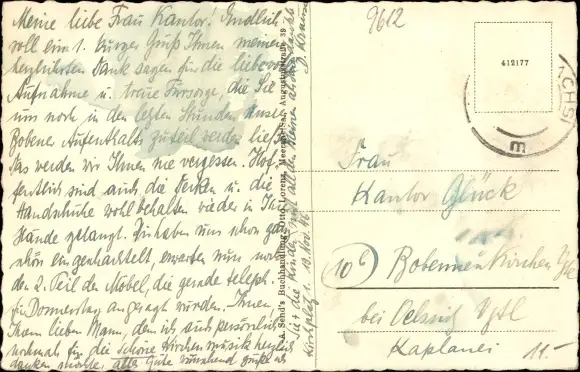 Meine liebe Frau Kantor! Endlich
soll ein 1. kurzer Gruß Ihnen meinen
herzlichsten Dank sagen für die liebevolle
Aufnahme u. treue Fürsorge, die Sie
uns noch in den letzten Stunden unseres
Bobener Aufenthalts zuteil werden ließen.
Das werden wir Ihnen nie vergessen. Hof-
fentlich sind auch die Decken u. die
Handschuhe wohlbehalten wieder in Ihre
Hände gelangt. Wir haben uns schon ganz
schön eingeschachtelt, erwarten nun noch
den 2. Teil der Möbel, die gerade teleph.
für Donnerstag angesagt wurden. Ihnen,
Ihrem lieben Mann, dem ich auch persönlich
nochmals für die schöne Kirchenmusik herzl.
danken möchte, alles Gute wünschend grüße ich
Sie u. die Kinder mit all den Meinen
Kirchplatz 1. 13. Nov. 46
Send's Buchhandlung, Otto Lorenz, Meerane/Sa., Auguststraße 39
9612
412177
CHS
E
Frau
Kantor Glück
10b
Bobenneukirchen
bei Oelsnitz Vgtl
Kaplanei
11.-